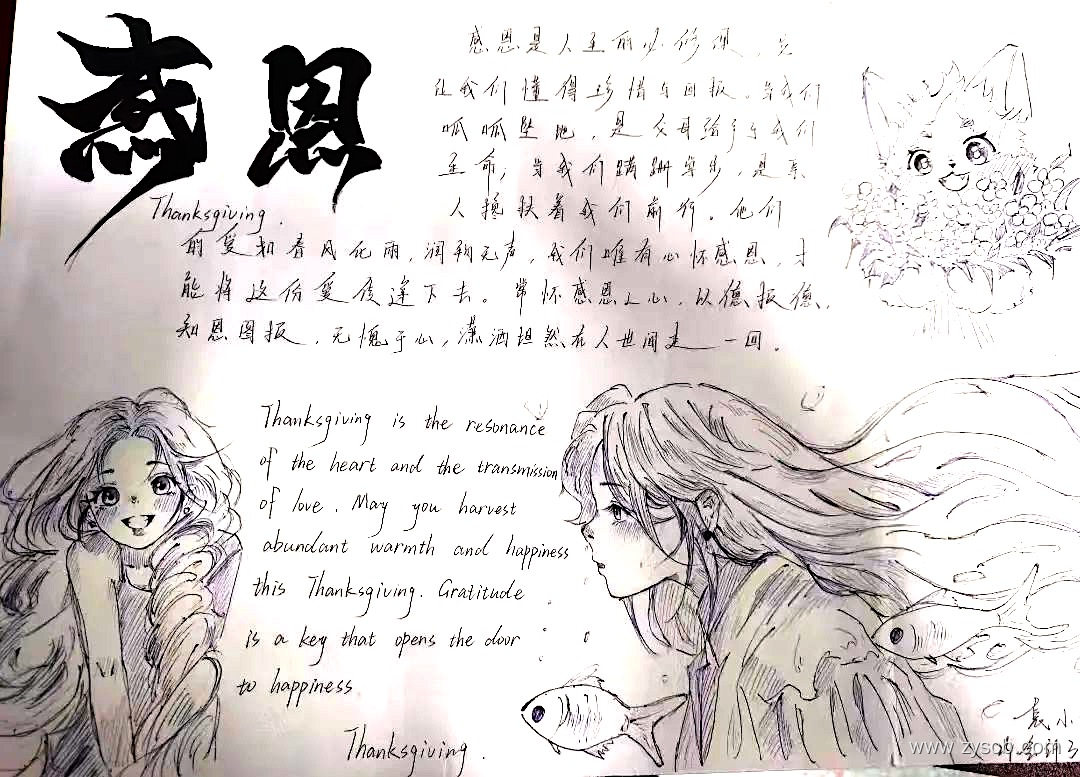 感恩
Thanksgiving.
感恩是人生的必修课，它
让我们懂得珍惜与回报。当我们
呱呱坠地，是父母给予了我们
生命；当我们蹒跚学步，是家
人搀扶着我们前行。他们
的爱如春风化雨，润物无声，我们唯有心怀感恩，才
能将这份爱传递下去。常怀感恩之心，以德报德，
知恩图报，无愧于心，潇洒坦然在人世间走一回。
Thanksgiving is the resonance
of the heart and the transmission
of love. May you harvest
abundant warmth and happiness
this Thanksgiving. Gratitude
is a key that opens the door
to happiness
Thanksgiving.
小
www.zysob.com